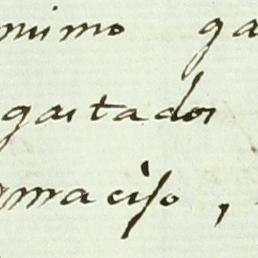 nimo ga
gastados
maciso ,